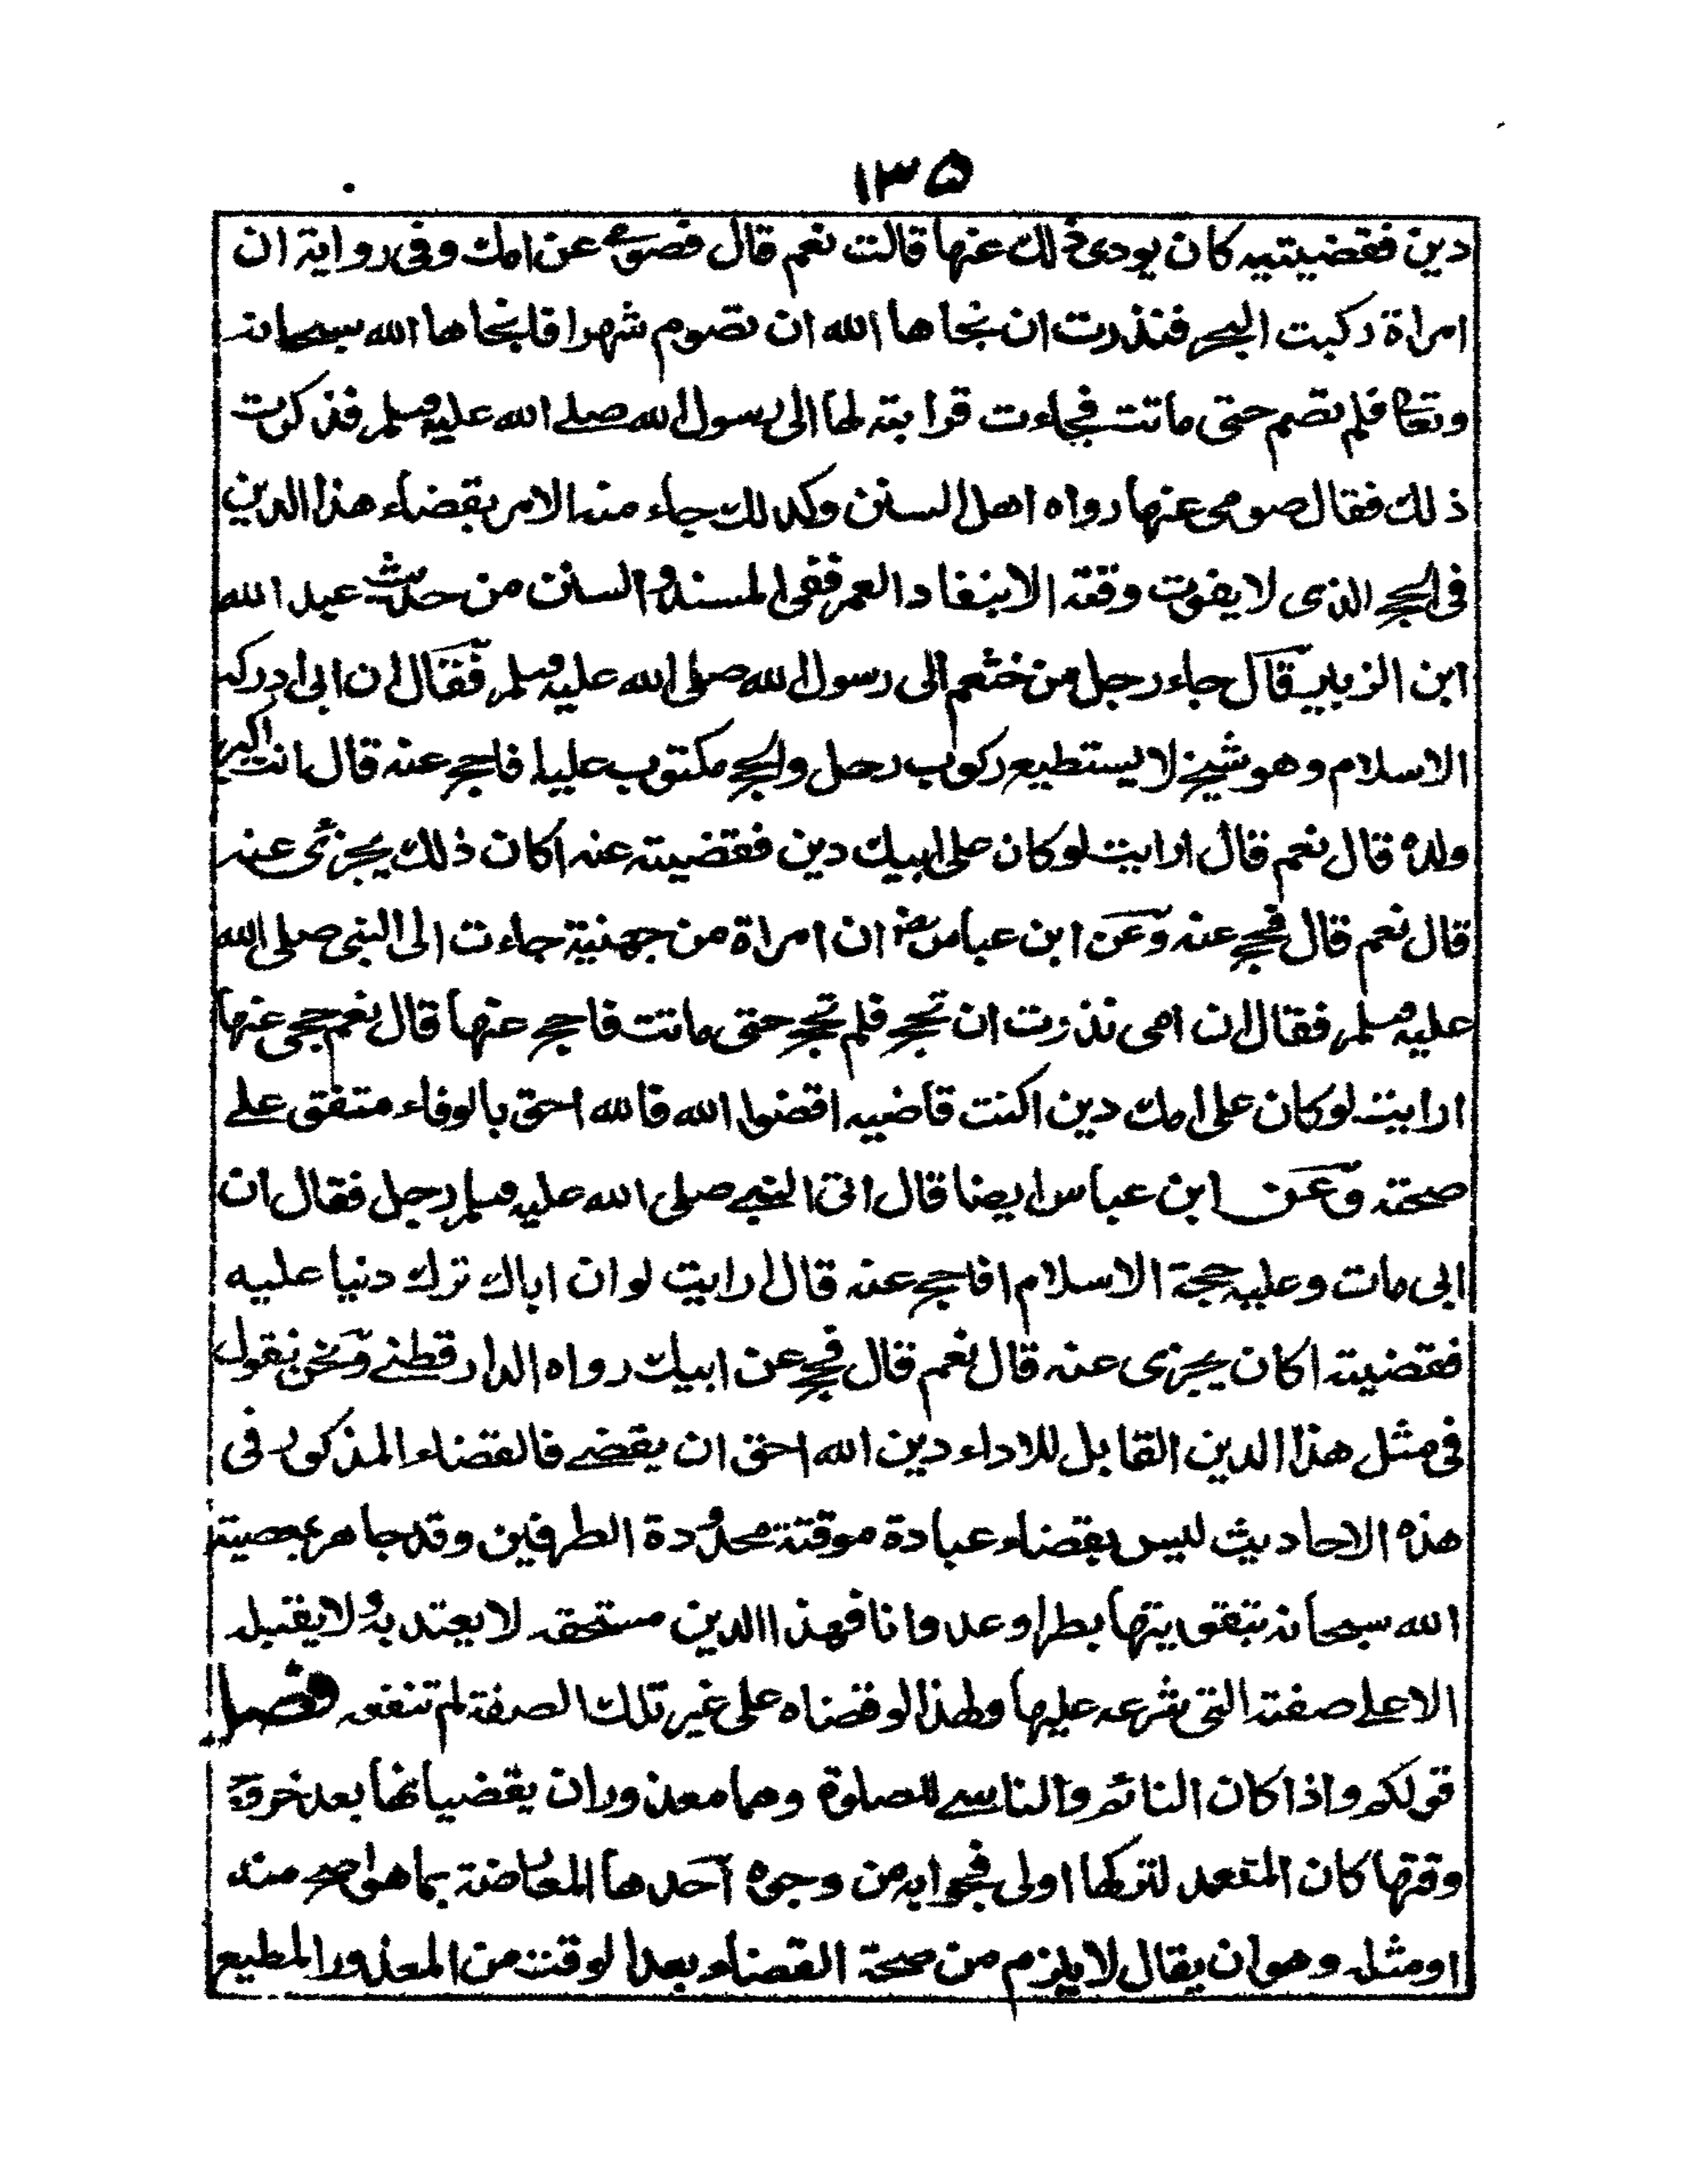 ١٣٥
دين فقضيتيه كان يودى ذلك عنها قالت نعم قال فصومى عن امك وفى رواية ان
امراة ركبت البحر فنذرت ان نجاها الله ان تصوم شهرا فانجاها الله سبحانه
وتعا فلم تصم حتى ماتت فجاءت قرابته لها الى رسول الله صلے الله عليه وسلم فذكرت
ذلك فقال صومى عنها رواه اهل السنن وكذلك جاء منه الامر بقضاء هذا الدين
فى الحج الذى لا يفوت وقته الا بنفاد العمر ففى المسند والسنن من حديث عبد الله
ابن الزبير قال جاء رجل من خثعم الى رسول الله صلى الله عليه وسلم فقال ان ابى ادركه
الاسلام وهو شيخ لا يستطيع ركوب رحل والحج مكتوب عليه افاحج عنه قال انت اكبر
ولده قال نعم قال ارايت لو كان على ابيك دين فقضيته عنه اكان ذلك يجزئ عنه
قال نعم قال فحج عنه وعن ابن عباس رض ان امراة من جهنية جاءت الى النبى صلى الله
عليه وسلم فقال ان امى نذرت ان تحج فلم تحج حتى ماتت فاحج عنها قال نعم حجى عنها
ارايت لو كان على امك دين اكنت قاضيه اقضوا الله فالله احق بالوفاء متفق علے
صحته وعن ابن عباس ايضا قال اتى النبے صلى الله عليه وسلم رجل فقال ان
ابى مات وعليه حجة الاسلام افاحج عنه قال ارايت لو ان اباك ترك دنيا عليه
فقضيته اكان يجزى عنه قال نعم قال فحج عن ابيك رواه الدارقطنے ونحن نقول
فى مثل هذا الدين القابل للاداء دين الله احق ان يقضے فالقضاء المذكور فى
هذه الاحاديث ليس بقضاء عبادة موقتة محدودة الطرفين وقد جاهر بمعصية
الله سبحانه بتفويتها بطرا وعدوانا فهذا الدين مستحقه لا يعتد به ولا يقبله
الا علے صفته التى شرعه عليها ولهذا لو قضاه على غير تلك الصفة لم تنفعه فصل
قولكم واذا كان النائم والناسے للصلوة وهما معذوران يقضيانها بعد خروج
وقتها كان المتعمد لتركها اولى فجوابه من وجوه احدها المعارضة بما هو اصح منه
او مثله وهو ان يقال لا يلزم من صحة القضاء بعد الوقت من المعذور المطيع